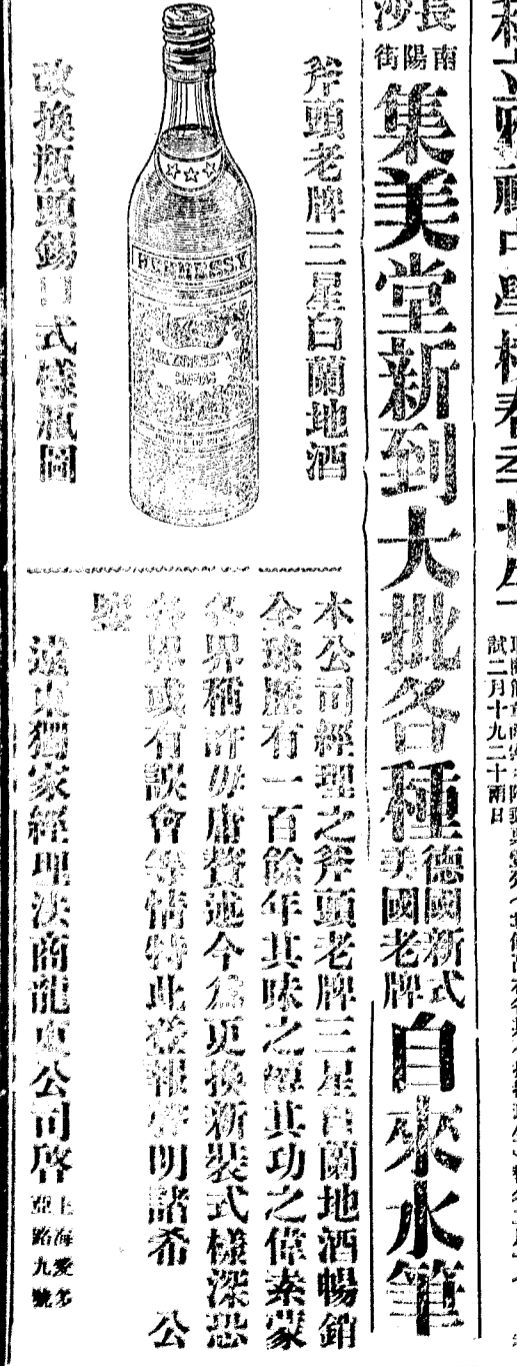 試二月十九二十兩日
長沙
南陽街
集美堂新到大批各種
德國新式
美國老牌
自來水筆
斧頭老牌三星白蘭地酒
HENNESSY
改換瓶頭錫口式樣瓶圖
本公司經理之斧頭老牌三星白蘭地酒暢銷
全球歷有一百餘年其味之醇其功之偉素蒙
各界稱許毋庸贅述今為更換新裝式樣深恐
各界或有誤會等情特此登報聲明諸希 公
鑒
遠東獨家經理法商龍東公司啓
上海愛多
亞路九號